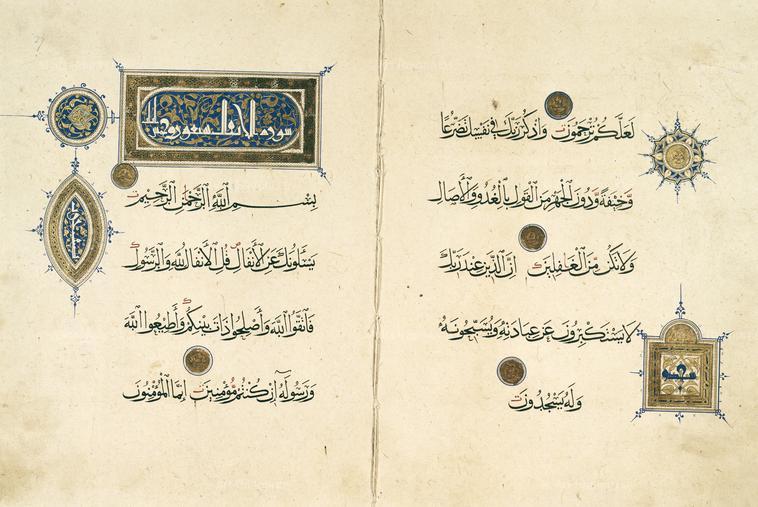 لَعَلَّكُمْ تُرْحَمُونَ وَاذْكُرْ رَبَّكَ فِي نَفْسِكَ تَضَرُّعًا
وَخِيفَةً وَدُونَ الْجَهْرِ مِنَ الْقَوْلِ بِالْغُدُوِّ وَالْآصَالِ
وَلَا تَكُنْ مِنَ الْغَافِلِينَ إِنَّ الَّذِينَ عِنْدَ رَبِّكَ
لَا يَسْتَكْبِرُونَ عَنْ عِبَادَتِهِ وَيُسَبِّحُونَهُ
وَلَهُ يَسْجُدُونَ
سورة الانفال سبعون وخمس
بِسْمِ اللَّهِ الرَّحْمَٰنِ الرَّحِيمِ
يَسْأَلُونَكَ عَنِ الْأَنْفَالِ قُلِ الْأَنْفَالُ لِلَّهِ وَالرَّسُولِ
فَاتَّقُوا اللَّهَ وَأَصْلِحُوا ذَاتَ بَيْنِكُمْ وَأَطِيعُوا اللَّهَ
وَرَسُولَهُ إِنْ كُنْتُمْ مُؤْمِنِينَ إِنَّمَا الْمُؤْمِنُونَ